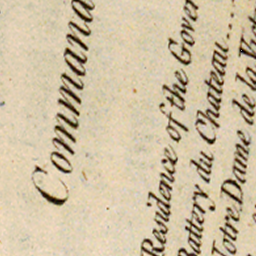 Command
Residence of the Gover
Battery du Chateau....
Notre Dame de la Vict